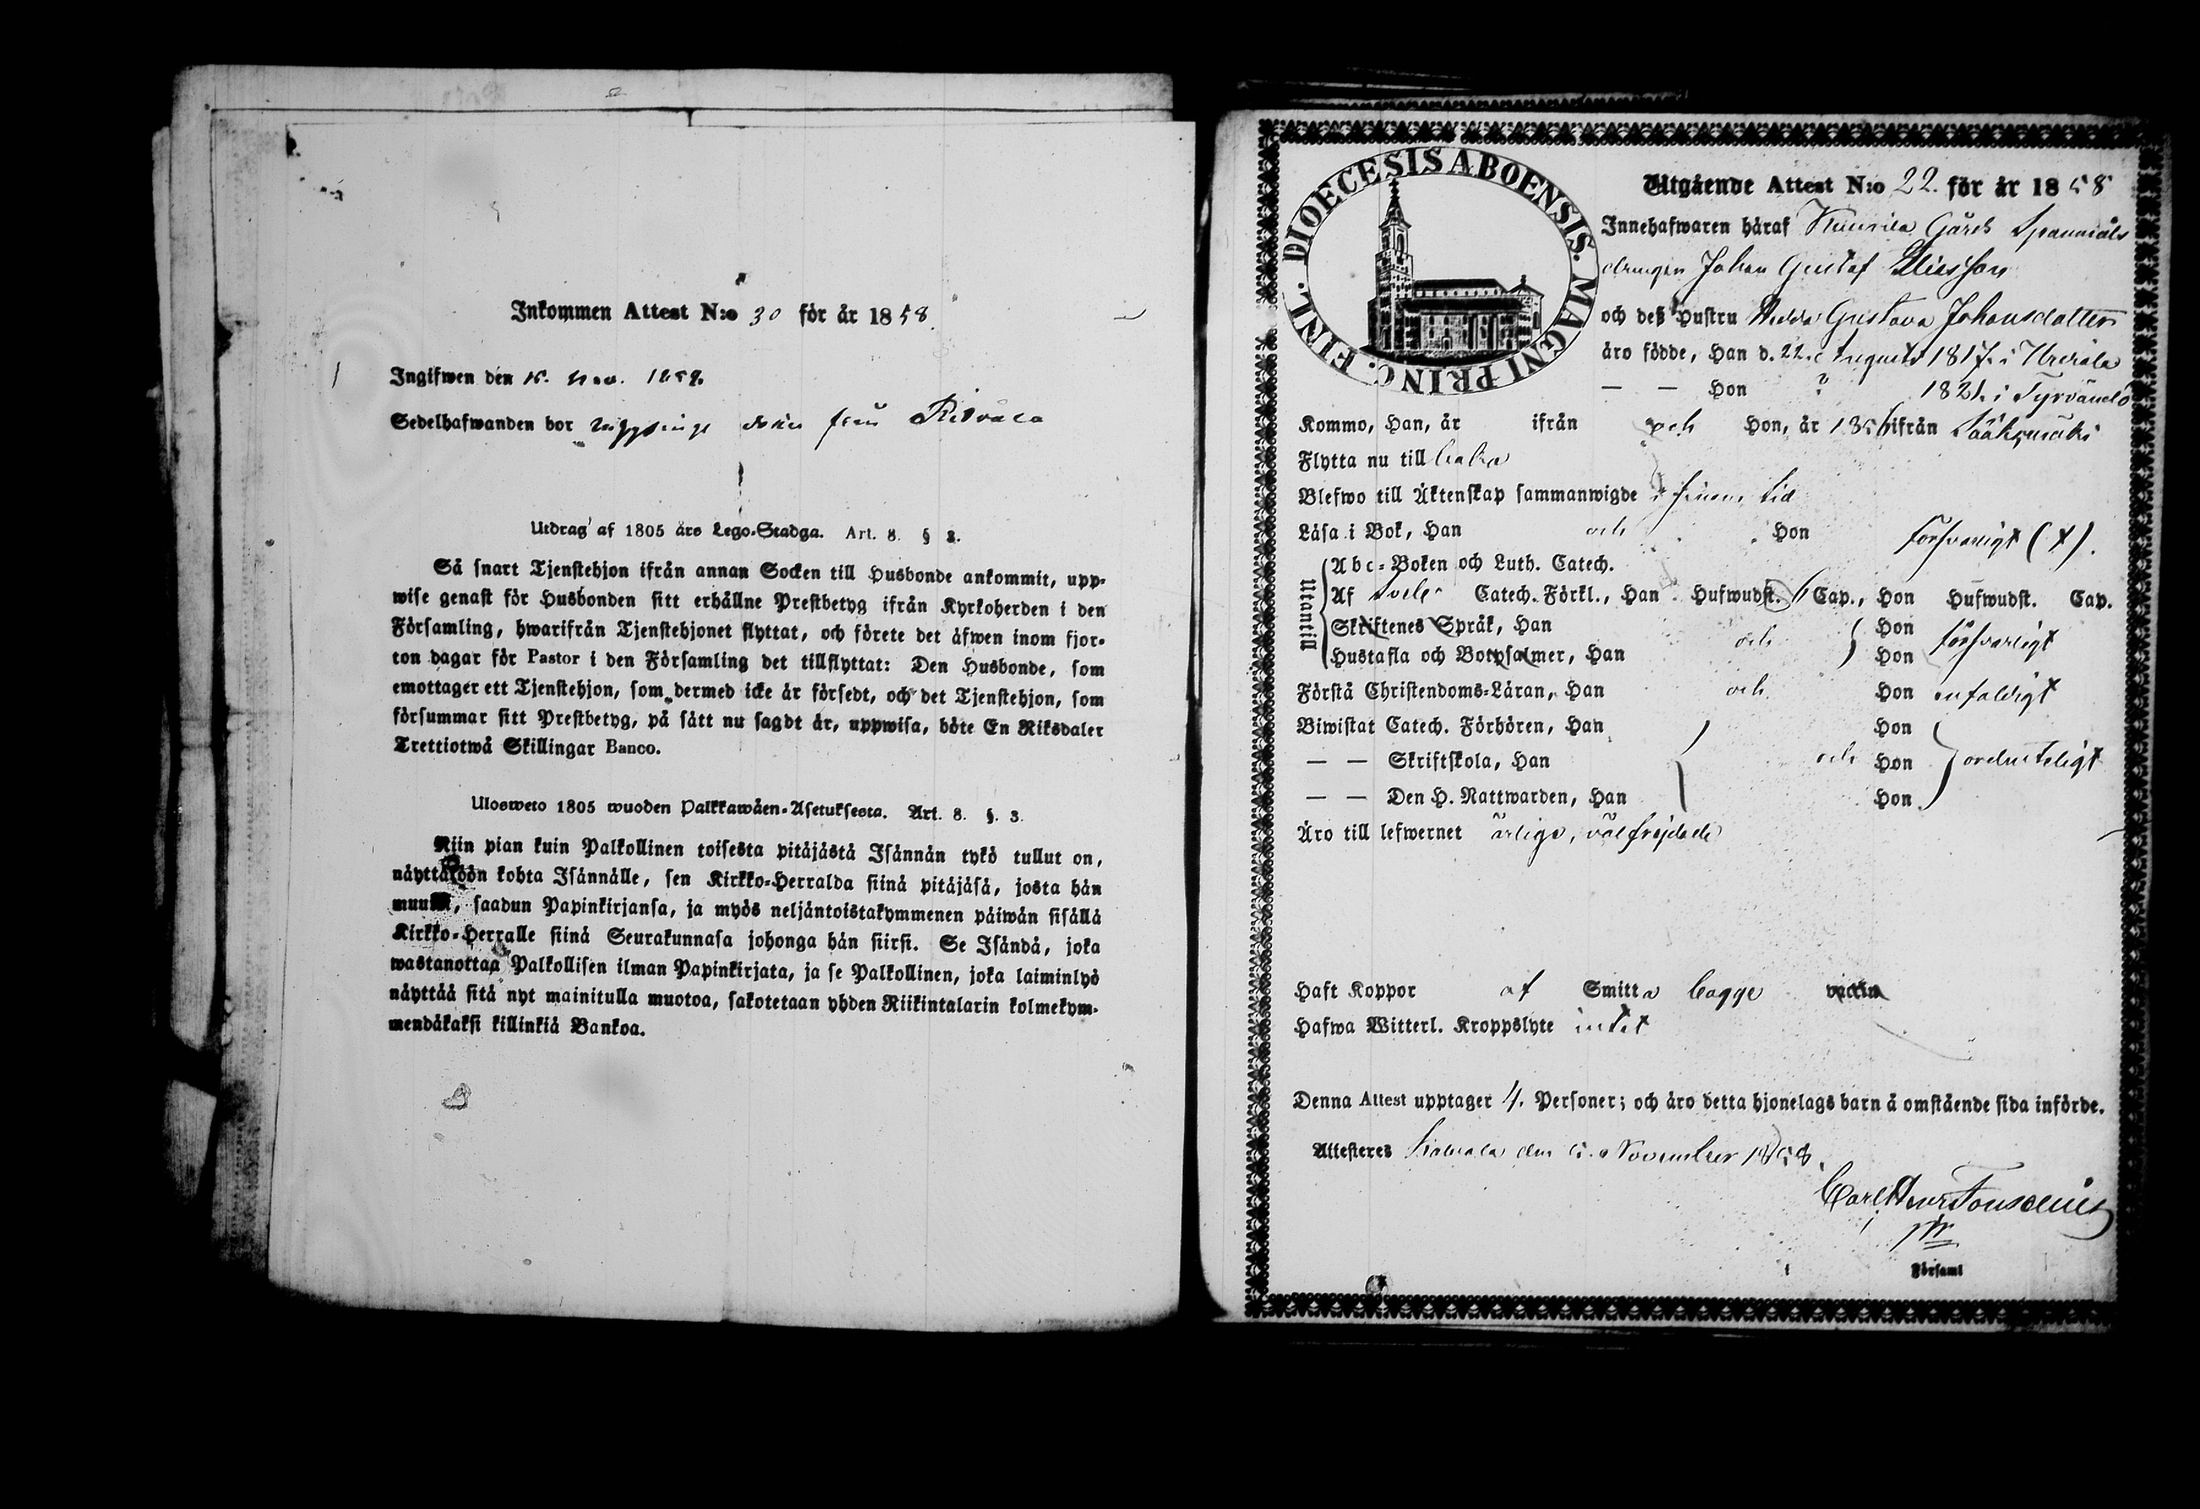 Inkommen Attest N:o 30 för år 1858.
Ingifwen den 15. Nov. 1858.
Sedelhafwanden bor från Ritvala
Utdrag af 1805 års Lego-Stadga. Art. 8. § 3.
Så snart Tjenstehjon ifrån annan Socken till Husbonde ankommit, upp-
wise genast för Husbonden sitt erhållne Prestbetyg ifrån Kyrkoherden i den
Församling, hwarifrån Tjenstehjonet flyttat, och förete det äfwen inom fjor-
ton dagar för Pastor i den Församling det tillflyttat: Den Husbonde, som
emottager ett Tjenstehjon, som dermed icke är försedt, och det Tjenstehjon, som
försummar sitt Prestbetyg, på sätt nu sagdt är, uppwisa, böte En Riksdaler
Trettiotwå Skillingar Banco.
Ulosweto 1805 wuoden Palkkawäen-Asetuksesta. Art. 8. §. 3.
Niin pian kuin Palkollinen toisesta pitäjästä Isännän tykö tullut on,
näyttäköön kohta Isännälle, sen Kirkko-Herralda siinä pitäjäsä, josta hän
muutti, saadun Papinkirjansa, ja myös neljäntoistakymmenen päiwän sisällä
Kirkko-Herralle siinä Seurakunnasa johonga hän siirsi. Se Isändä, joka
wastanottaa Palkollisen ilman Papinkirjata, ja se Palkollinen, joka laiminlyö
näyttää sitä nyt mainitulla muotoa, sakotetaan yhden Riikintalarin kolmekym-
mendäkaksi killinkiä Bankoa.
DIOECESIS ABOENSIS. MAGNI PRINC. FINL.
Utgående Attest N:o 22. för år 1858
Innehafwaren häraf Gårds Spanmåls
drängen Johan Gustaf Eliasson
och deß Hustru Hedda Gustava Johansdotter
äro födde, Han d. 22. Augusti 1817. i Urdiala
— — Hon ? 1821. i Tyrväntö
Kommo, Han, år ifrån och Hon, år ifrån Sääksmäki
Flytta nu till
Blefwo till Äktenskap sammanwigde i sinom tid
Läsa i Bok, Han och Hon försvarligt (x).
Utantill
Abc-Boken och Luth. Catech.
Af Svebe. Catech. Förkl., Han Hufwudst. Cap., Hon Hufwudst. Cap.
Skriftenes Språk, Han och Hon försvarligt
Hustafla och Botpsalmer, Han Hon
Förstå Christendoms-Läran, Han och Hon enfaldigt
Biwistat Catech. Förhören, Han Hon
— — Skriftskola, Han och Hon ordenteligt
— — Den H. Nattwarden, Han Hon
Äro till lefwernet ärlige, välfrejdade
Haft Koppor af Smitta begge vaccin
Hafwa Witterl. Kroppslyte intet
Denna Attest upptager 4. Personer; och äro detta hjonelags barn å omstående sida införde.
Attesteres den 5. November 1858.
Församl